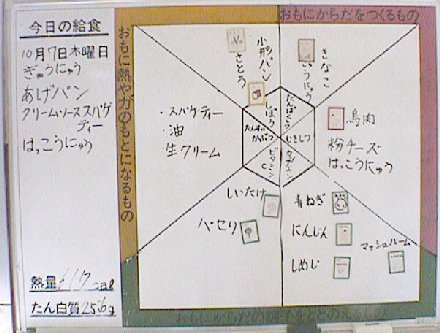 今日の給食
10月7日木曜日
ぎゅうにゅう
あげパン
クリームソーススパゲ
ティー
はっこうにゅう
熱量
たん白質 25.6g
おもに熱や力のもとになるもの
おもにからだをつくるもの
さとう
小形パン
きなこ
ぎゅうにゅう
・スパゲティー
・油
生クリーム
しぼう
鳥肉
粉チーズ
はっこうにゅう
しいたけ
パセリ
青ねぎ
にんじん
しめじ
マッシュルーム